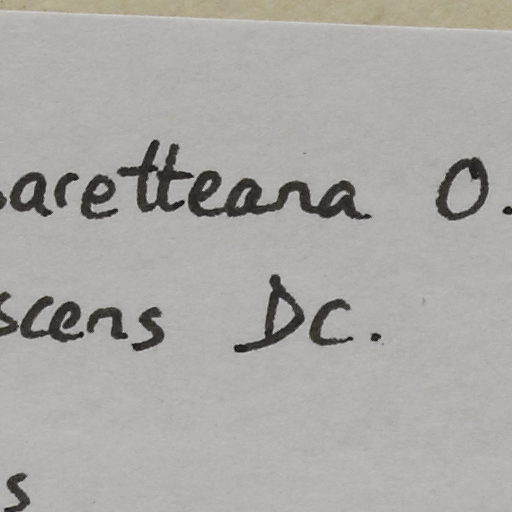 aretteana O.
scens DC.
s